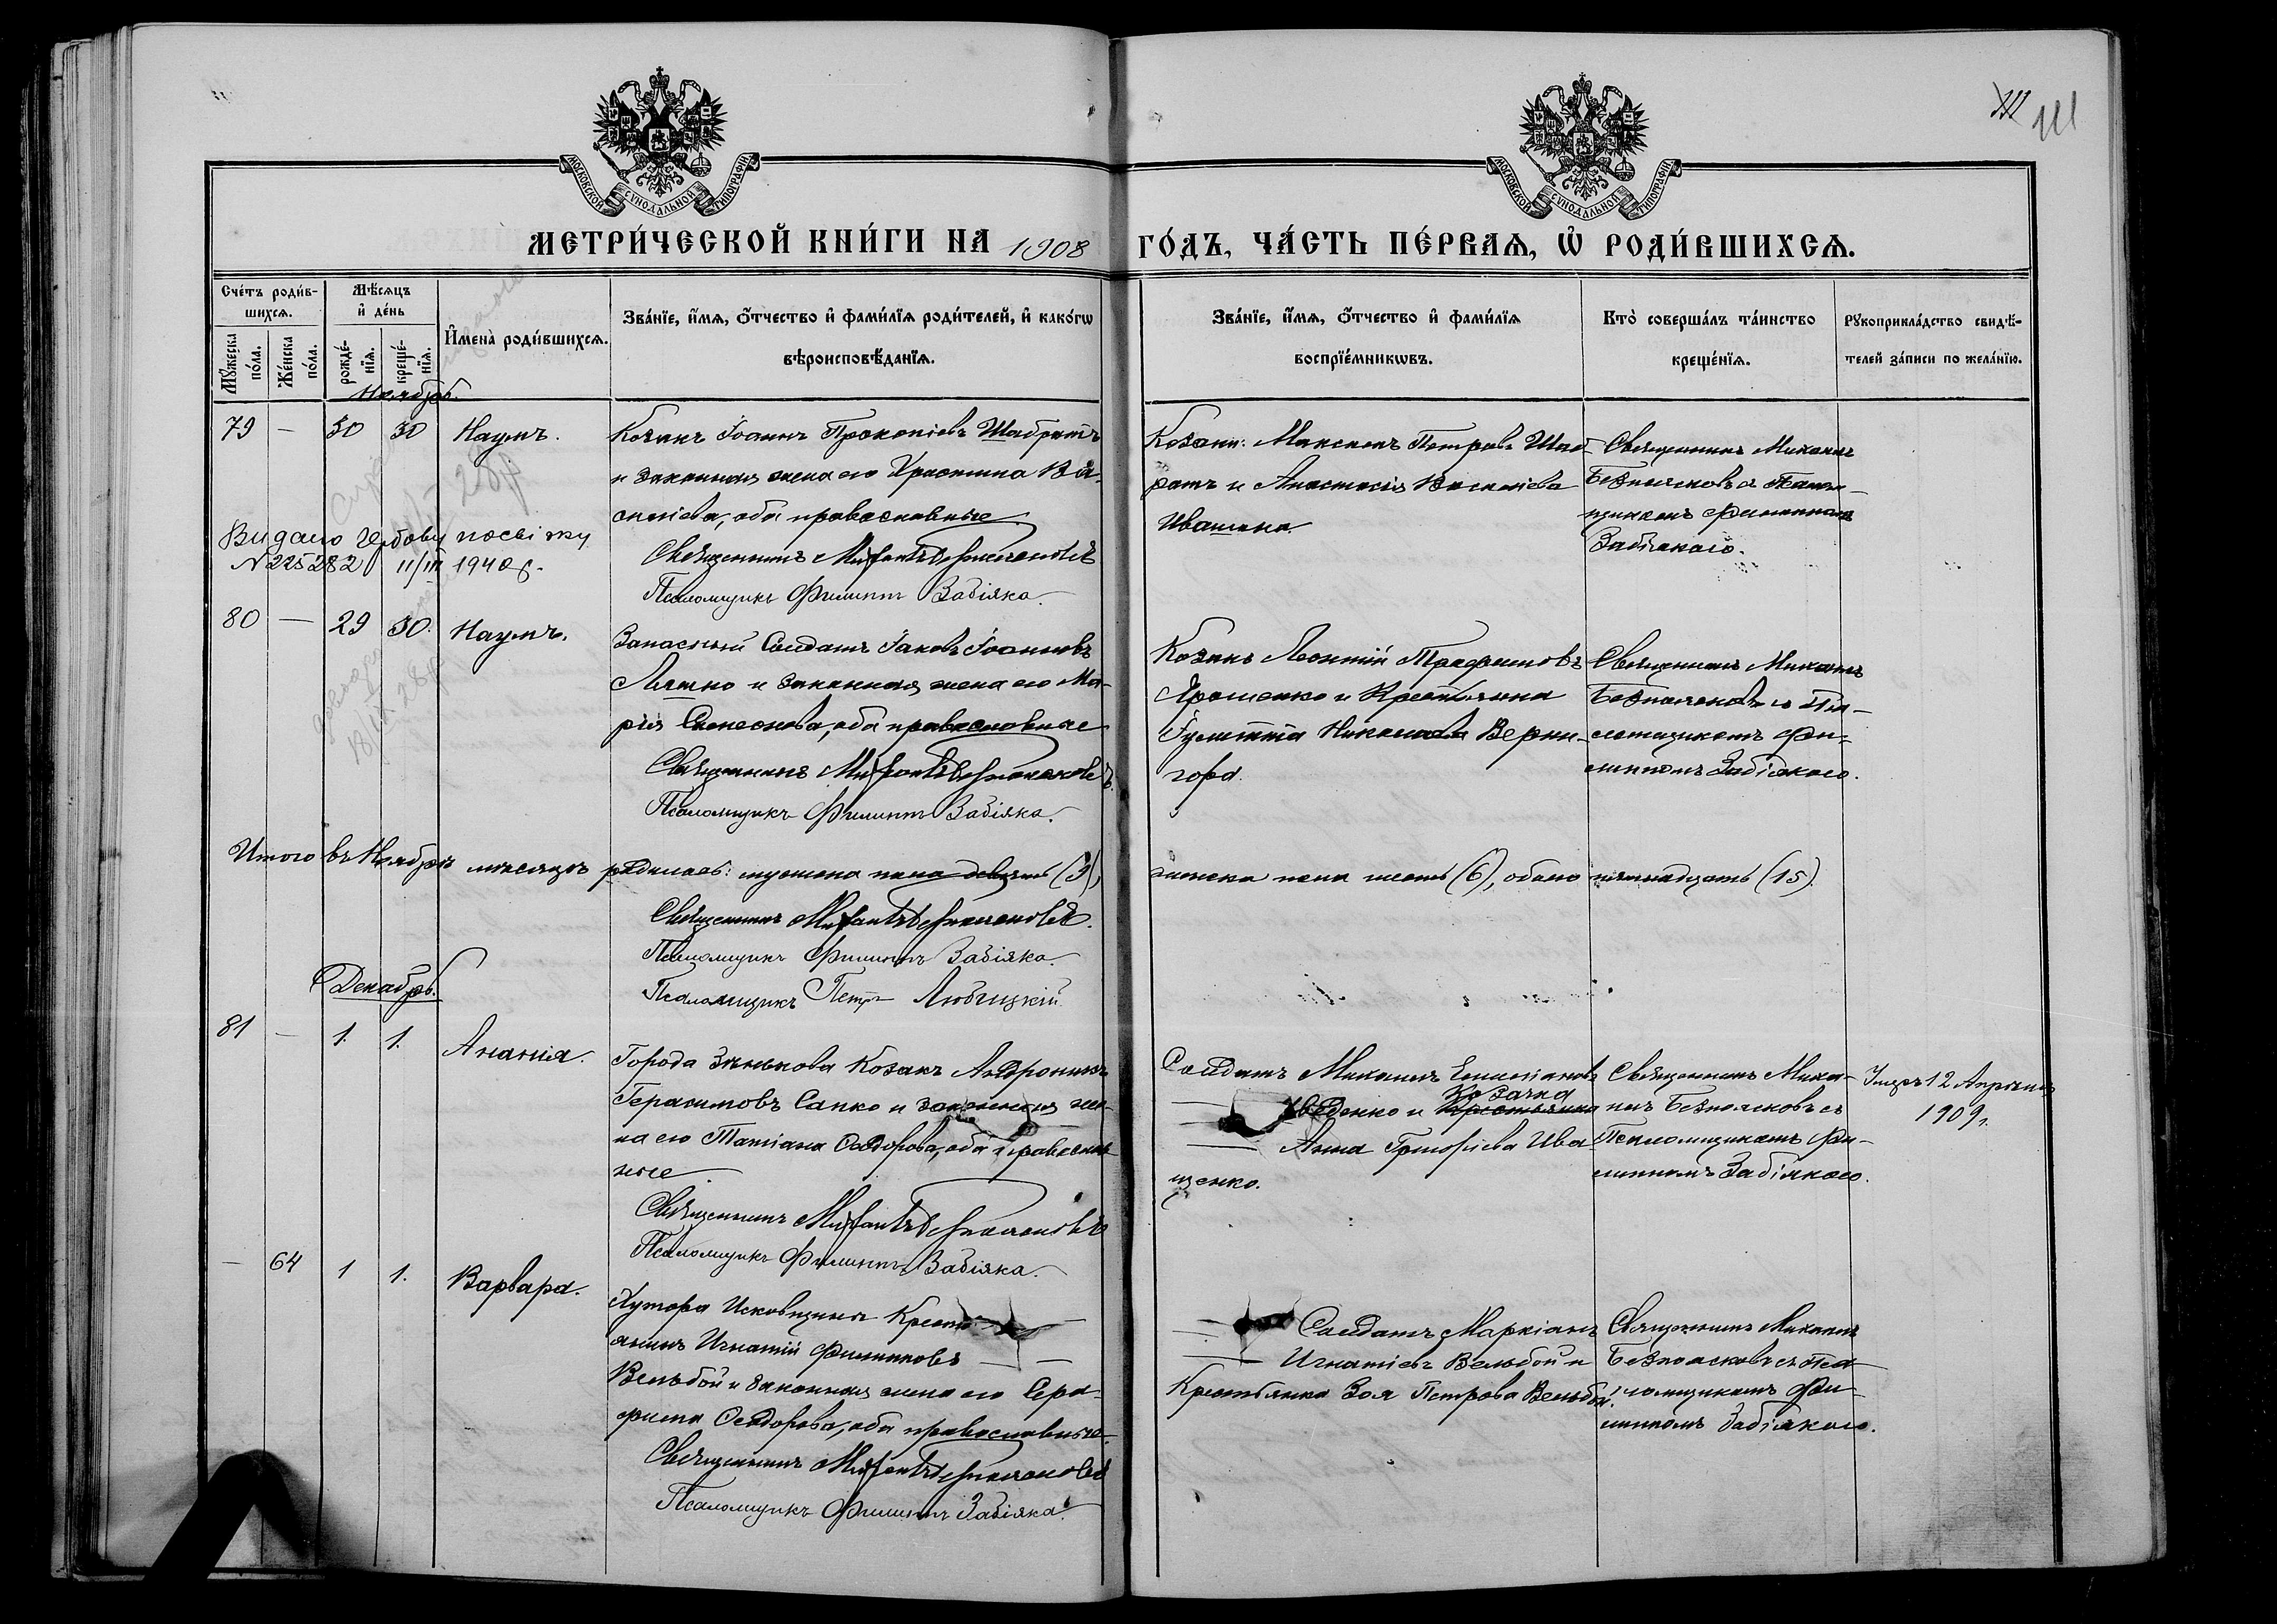 111
111
МОСКОВСКОЙ СУНОДАЛЬНОЙ ТИПОГРАФІИ
МОСКОВСКОЙ СУНОДАЛЬНОЙ ТИПОГРАФІИ
МЕТРИ́ЧЕСКОЙ КНИ́ГИ НА 1908 ГО́ДЪ, ЧА́СТЬ ПЕ́РВАѦ, Ѡ҆ РОДИ́ВШИХСѦ.
Сче́тъ роди́в-
шихсѧ.
Мꙋ́жеска по́ла.
Же́нска по́ла.
Мѣ́сѧцъ
и҆ де́нь
рожде́-
нїѧ.
креще́-
нїѧ.
И҆мена̀ роди́вшихсѧ.
Зва́нїе, и҆́мѧ, ѻ҆́тчество и҆ фами́лїѧ роди́телей, и҆ како́гѡ
вѣроисповѣ́данїѧ.
Зва́нїе, и҆́мѧ, ѻ҆́тчество и҆ фами́лїѧ
воспрїе́мникѡвъ.
Кто̀ соверша́лъ та́инство
креще́нїѧ.
Рꙋкоприкла́дство свидѣ́-
телей за́писи по жела́нїю.
Ноябрь.
79 — 30 30 Наумъ.
Козакъ Іоаннъ Прокопіевъ Шабратъ
и законная жена его Христина Ва-
силіева, оба православные
Священникъ Михаилъ Безпоясковъ
Псаломщикъ Филиппъ Забіяка.
Козаки: Максимъ Петровъ Шаб-
ратъ и Анастасія Василіева
Ивашина
Священникъ Михаилъ
Безпоясковъ съ Псалом-
щикомъ Филиппомъ
Забіякою.
Видано Гербову посвідку
N 225282 11/III 1940 р.
80 — 29 30. Наумъ.
Запасный Солдатъ Іаковъ Іоанновъ
Ляшко и законная жена его Ма-
рія Симеонова, оба православные
Священникъ Михаилъ Безпоясковъ.
Псаломщикъ Филиппъ Забіяка.
Козакъ Леонтій Трофимовъ
Ярошенко и Крестьянка
Іулитта Николаева Верни-
гора.
Священникъ Михаилъ
Безпоясковъ съ Пса-
ломщикомъ Фи-
липпомъ Забіякою.
18/IX 28 р
Итого въ Ноябрѣ мѣсяцѣ родилось: мужеска пола девять (9),
женска пола шесть (6), обоего пятнадцать (15).
Священникъ Михаилъ Безпоясковъ.
Псаломщикъ Филиппъ Забіяка.
Псаломщикъ Петръ Любицкій.
Декабрь.
81 — 1. 1. Ананія.
Города Зѣнькова Козакъ Андроникъ
Герасимовъ Сапко и законная же-
на его Татіана Ѳедорова, оба православ-
ные
Священникъ Михаилъ Безпоясковъ
Псаломщикъ Филиппъ Забіяка.
Солдатъ Михаилъ Емиліановъ
Козачка
и Крестьянка
Анна Григоріева Ива-
щенко.
Священникъ Миха-
илъ Безпоясковъ съ
Псаломщикомъ Фи-
липпомъ Забіякою.
Умеръ 12 Апрѣля
1909 г.
— 64 1 1. Варвара.
Хутора Исковщина Кресть-
янинъ Игнатій Филипповъ
Вельбой и законная жена его Сера-
фима Ѳеодорова, оба православные.
Священникъ Михаилъ Безпоясковъ
Псаломщикъ Филиппъ Забіяка.
Солдатъ Маркіанъ
Игнатіевъ Вельбой и
Крестьянка Зоя Петрова Вельбой.
Священникъ Михаилъ
Безпоясковъ съ Пса-
ломщикомъ Фи-
липпомъ Забіякою.